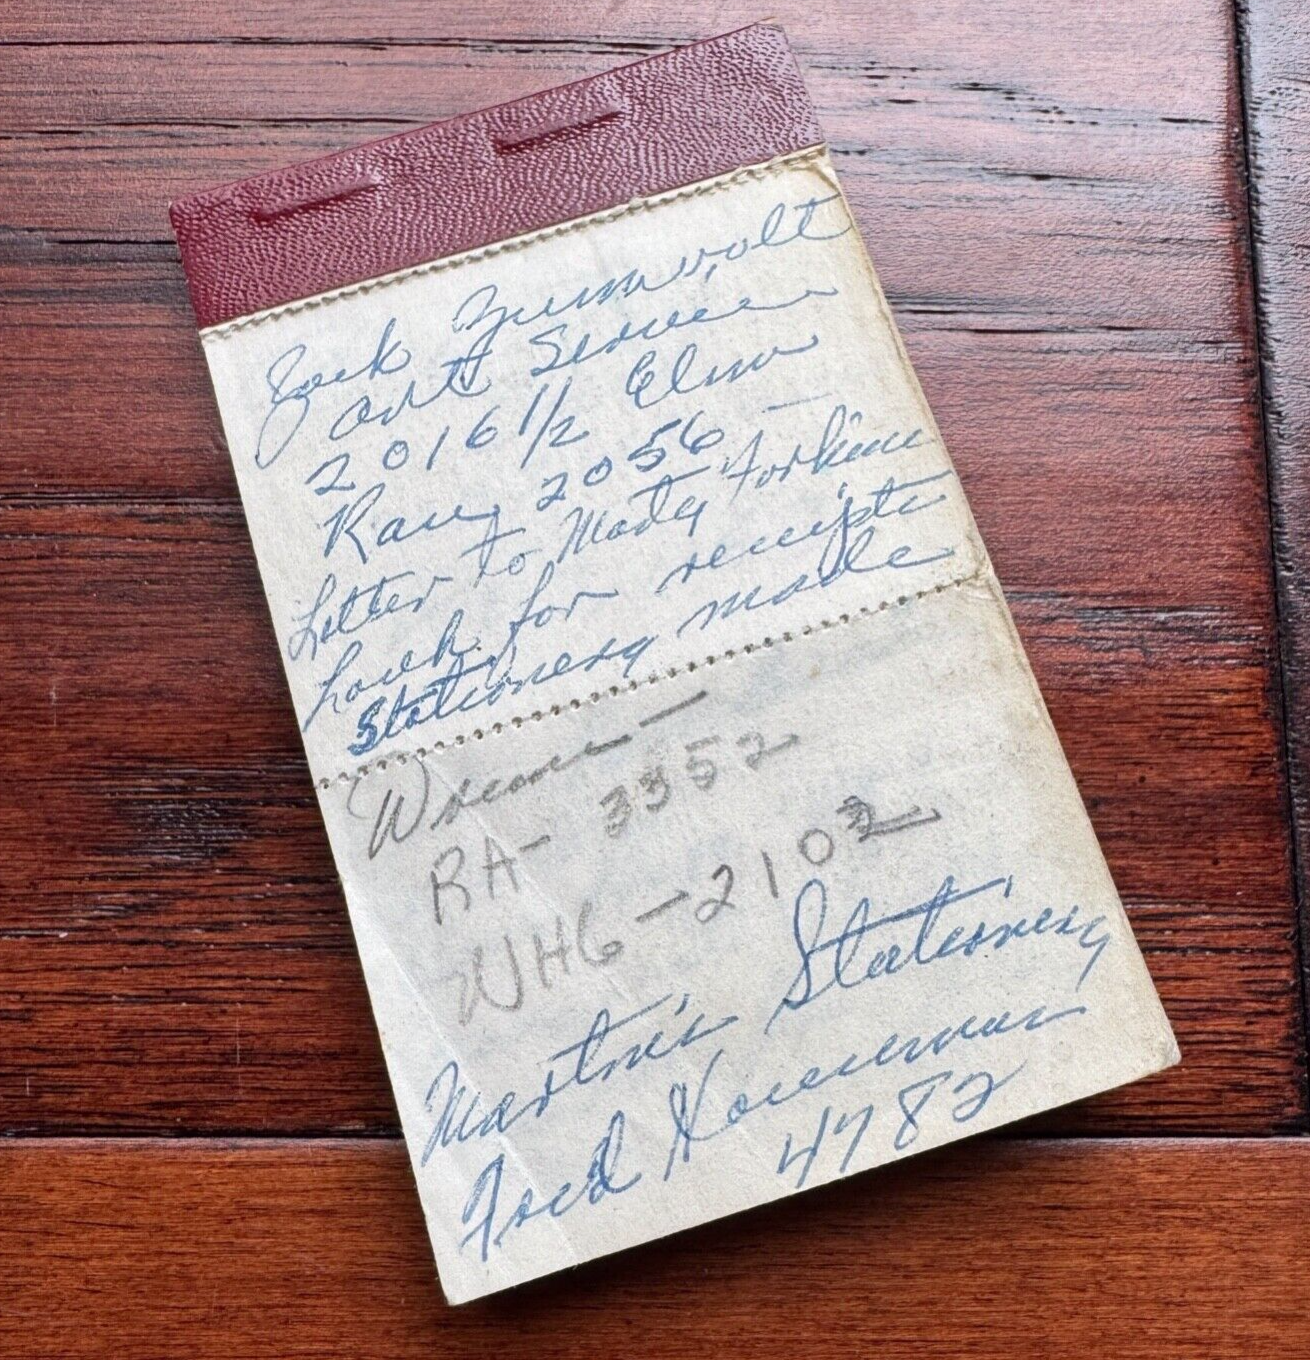 Jack Zumwalt
Art Service
2016 1/2 Elm
Ran, 2056 —
Letter to Mody
Look for receipts
Stationery made
RA- 3352
WH6 - 2102
Martin's Stationery
Fred
4782